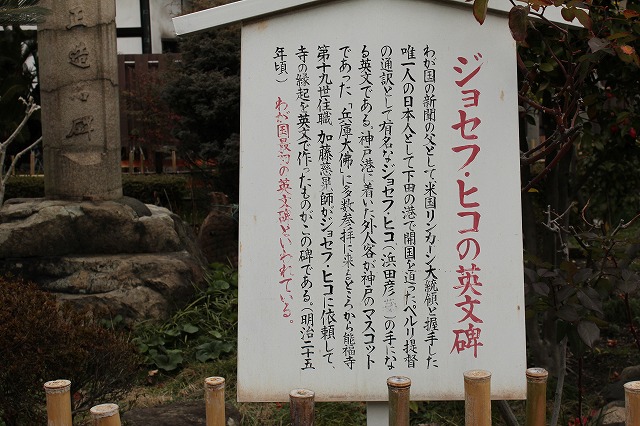 ジョセフ・ヒコの英文碑
わが国の新聞の父として、米国リンカーン大統領と握手した
唯一人の日本人として下田の港で開国を迫ったペルリ提督
の通訳として有名なジョセフ・ヒコ(浜田彦蔵)の手にな
る英文である。神戸港に着いた外人客が神戸のマスコット
であった「兵庫大佛」に多数参拝に来るところから能福寺
第十九世住職 加藤慈晃師がジョセフ・ヒコに依頼して、
寺の縁起を英文で作ったものがこの碑である。(明治二十五
年頃)わが国最初の英文碑といわれている。